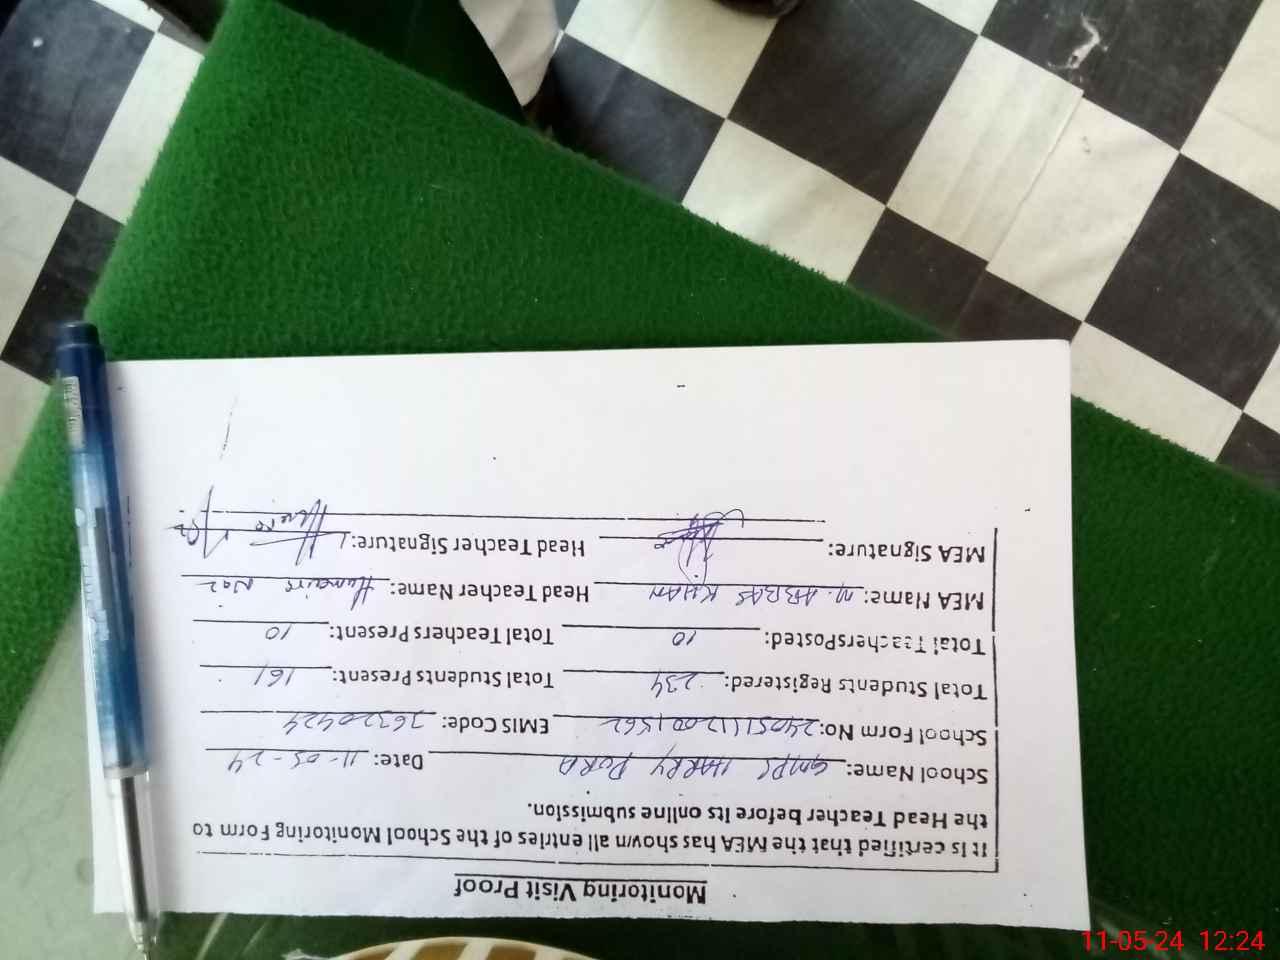 Monitoring Visit Proof
It is certified that the MEA has shown all entries of the School Monitoring Form to
the Head Teacher before its online submission.
School Name: GMPS HARRY PURA Date: 11-05-24
School Form No: EMIS Code: 36320424
Total Students Registered: 234 Total Students Present: 161
Total TeachersPosted: 10 Total Teachers Present: 10
MEA Name: M. ABBAS KHAN Head Teacher Name: Humaira Naz
MEA Signature: Head Teacher Signature:
11-05-24 12:24